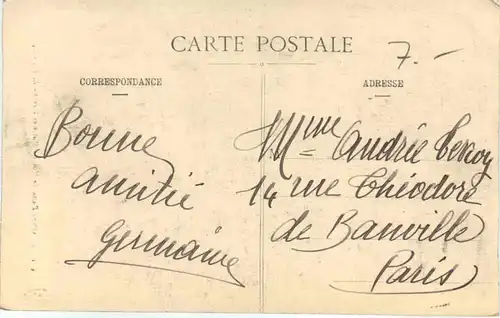 CARTE POSTALE
7.-
CORRESPONDANCE
ADRESSE
Bonne
amitié
Germaine
Mme Andrée
14 rue Théodore
de Banville
Paris